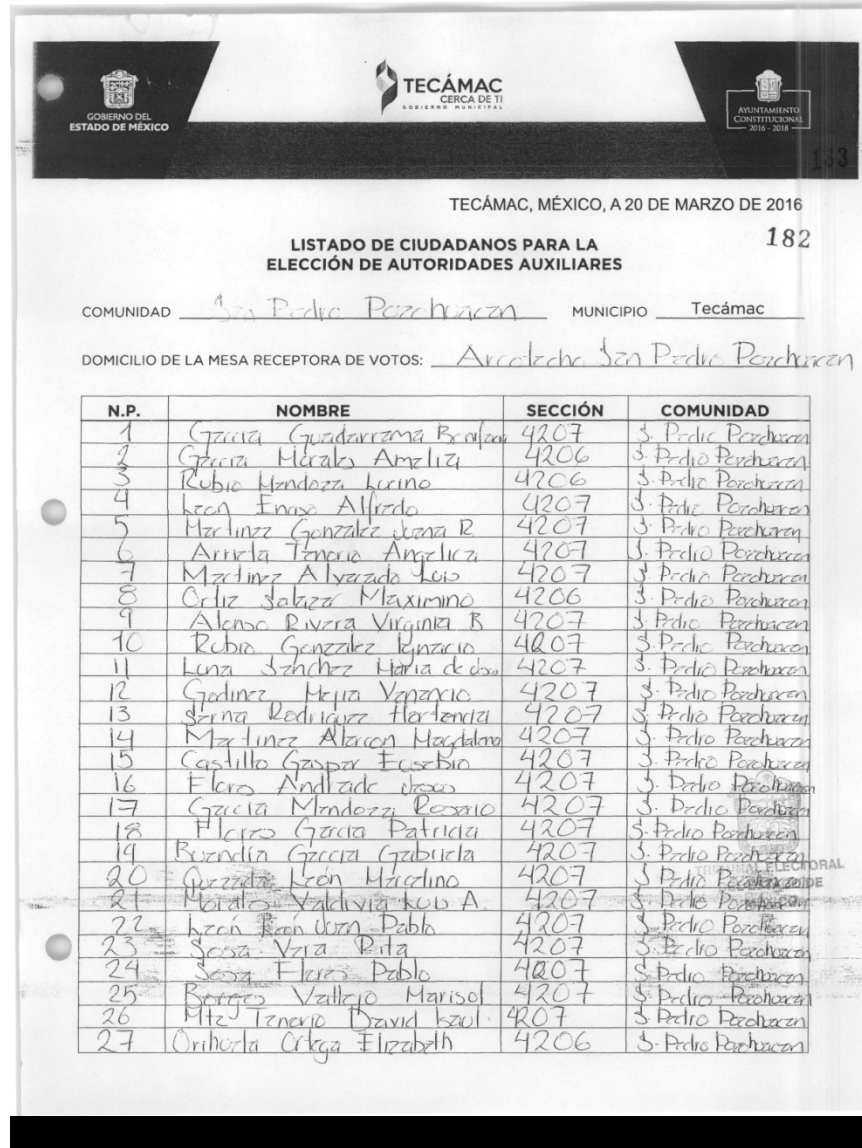 GOBIERNO DEL
ESTADO DE MÉXICO
TECÁMAC
CERCA DE TI
GOBIERNO MUNICIPAL
AYUNTAMIENTO
CONSTITUCIONAL
2016 - 2018
183
TECÁMAC, MÉXICO, A 20 DE MARZO DE 2016
182
LISTADO DE CIUDADANOS PARA LA
ELECCIÓN DE AUTORIDADES AUXILIARES
COMUNIDAD San Pedro Pozohuacan MUNICIPIO Tecámac
DOMICILIO DE LA MESA RECEPTORA DE VOTOS: Arcotecho San Pedro Pozohuacan
N.P. NOMBRE SECCIÓN COMUNIDAD
1 Garcia Guadarrama 4207 S. Pedro Pozohuacan
2 Garcia Morales Amelia 4206 S. Pedro Pozohuacan
3 Rubio Mendoza Lirino 4206 S. Pedro Pozohuacan
4 Leon Enciso Alfredo 4207 S. Pedro Pozohuacan
5 Martinez Gonzalez Juana R 4207 S. Pedro Pozohuacan
6 Arrieta Tenorio Angelica 4207 S. Pedro Pozohuacan
7 Martinez Alvarado Luis 4207 S. Pedro Pozohuacan
8 Ortiz Salazar Maximino 4206 S. Pedro Pozohuacan
9 Alonso Rivera Virginia B 4207 S. Pedro Pozohuacan
10 Rubio Gonzalez Ignacio 4207 S. Pedro Pozohuacan
11 Luna Sanchez Maria de 4207 S. Pedro Pozohuacan
12 Godinez Mejia Venancio 4207 S. Pedro Pozohuacan
13 Serna Rodriguez Hortencia 4207 S. Pedro Pozohuacan
14 Martinez Alarcon Magdalena 4207 S. Pedro Pozohuacan
15 Castillo Gaspar Eusebio 4207 S. Pedro Pozohuacan
16 Flores Andrade Jesus 4207 S. Pedro Pozohuacan
17 Garcia Mendoza Rosario 4207 S. Pedro Pozohuacan
18 Flores Garcia Patricia 4207 S. Pedro Pozohuacan
19 Buendía Garcia Gabriela 4207 S. Pedro Pozohuacan
TRIBUNAL ELECTORAL
20 Quezada León Marcelino 4207 S. Pedro Pozohuacan
21 Morales Valdivia Luis A. 4207 S. Pedro Pozohuacan
22 León León Juan Pablo 4207 S. Pedro Pozohuacan
23 Sosa Vera Rita 4207 S. Pedro Pozohuacan
24 Sosa Flores Pablo 4207 S. Pedro Pozohuacan
25 Borges Vallejo Marisol 4207 S. Pedro Pozohuacan
26 Mtz Tenorio David Isaul 4207 S. Pedro Pozohuacan
27 Orihuela Ortega Elizabeth 4206 S. Pedro Pozohuacan